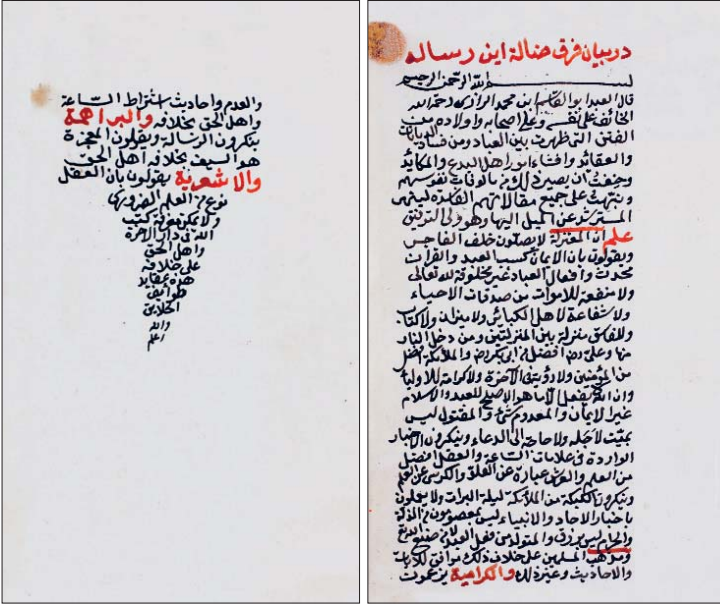 در بیان فرق ضالة این رساله
بسم الله الرحمن الرحيم
قال العبد ابو القاسم ابن محمد الرازى رحمه الله
الخائف على نفسه وعلى اصحابه واولاده من
الفتن التى ظهرت بين العباد ومن فساد الديانات
والعقائد وافشاء امور اهل البدع والمكايد
وخفت ان يصير ذلك مالوفات نفوسهم
ونبهت على جميع مقالاتهم الفاسدة لينتهى
المسترشد عن الميل اليها وهو ولى التوفيق
علم ان المعتزلة لا يصلون خلف الفاجر
ويقولون بان الايمان كسب العبد والقران
محدث وافعال العباد غير مخلوقة لله تعالى
ولا منفعة للاموات من صدقات الاحياء
ولا شفاعة لاهل الكبائر ولا ميزان ولا كتاب
وللفاسق منزلة بين المنزلتين ومن دخل النار
منها وعلى رض افضل من ابى بكر رض والملائكة افضل
من المؤمنين ولا رؤية فى الآخرة ولا كرامة للاولياء
وان الله لا يفعل الا ما هو الاصلح للعبد والاسلام
غير الايمان والمعدوم شئ والمقتول ليس
بميت لاجله ولا حاجة الى الدعاء وينكرون الاخبار
الواردة فى علامات الساعة والعقل افضل
من العلم والعرش عبارة عن العلو والكرسى عن العلم
وينكرون من الملائكة ليلة البرات ولا يعملون
باخبار الاحاد والانبياء ليس بمعصومون
والحرام ليس برزق والمتولد من فعل العبد لا من صنع
ومذهب المسلمين على خلاف ذلك
والاحاديث وغير ذلك والكرامية يزعمون
والعدم واحاديث اشتراط الساعة
واهل الحق بخلافه والبراهمة
ينكرون الرسالة ويقولون المعجزة
هو السيف بخلافه اهل الحق
والاشعرية يقولون بان العقل
نوع من العلم الضرورى
ولا يمكن معرفة كتب
الله فى دار الاخرة
واهل الحق
على خلافه
هذه عقايد
طوايف
الخلايق
والله
اعلم